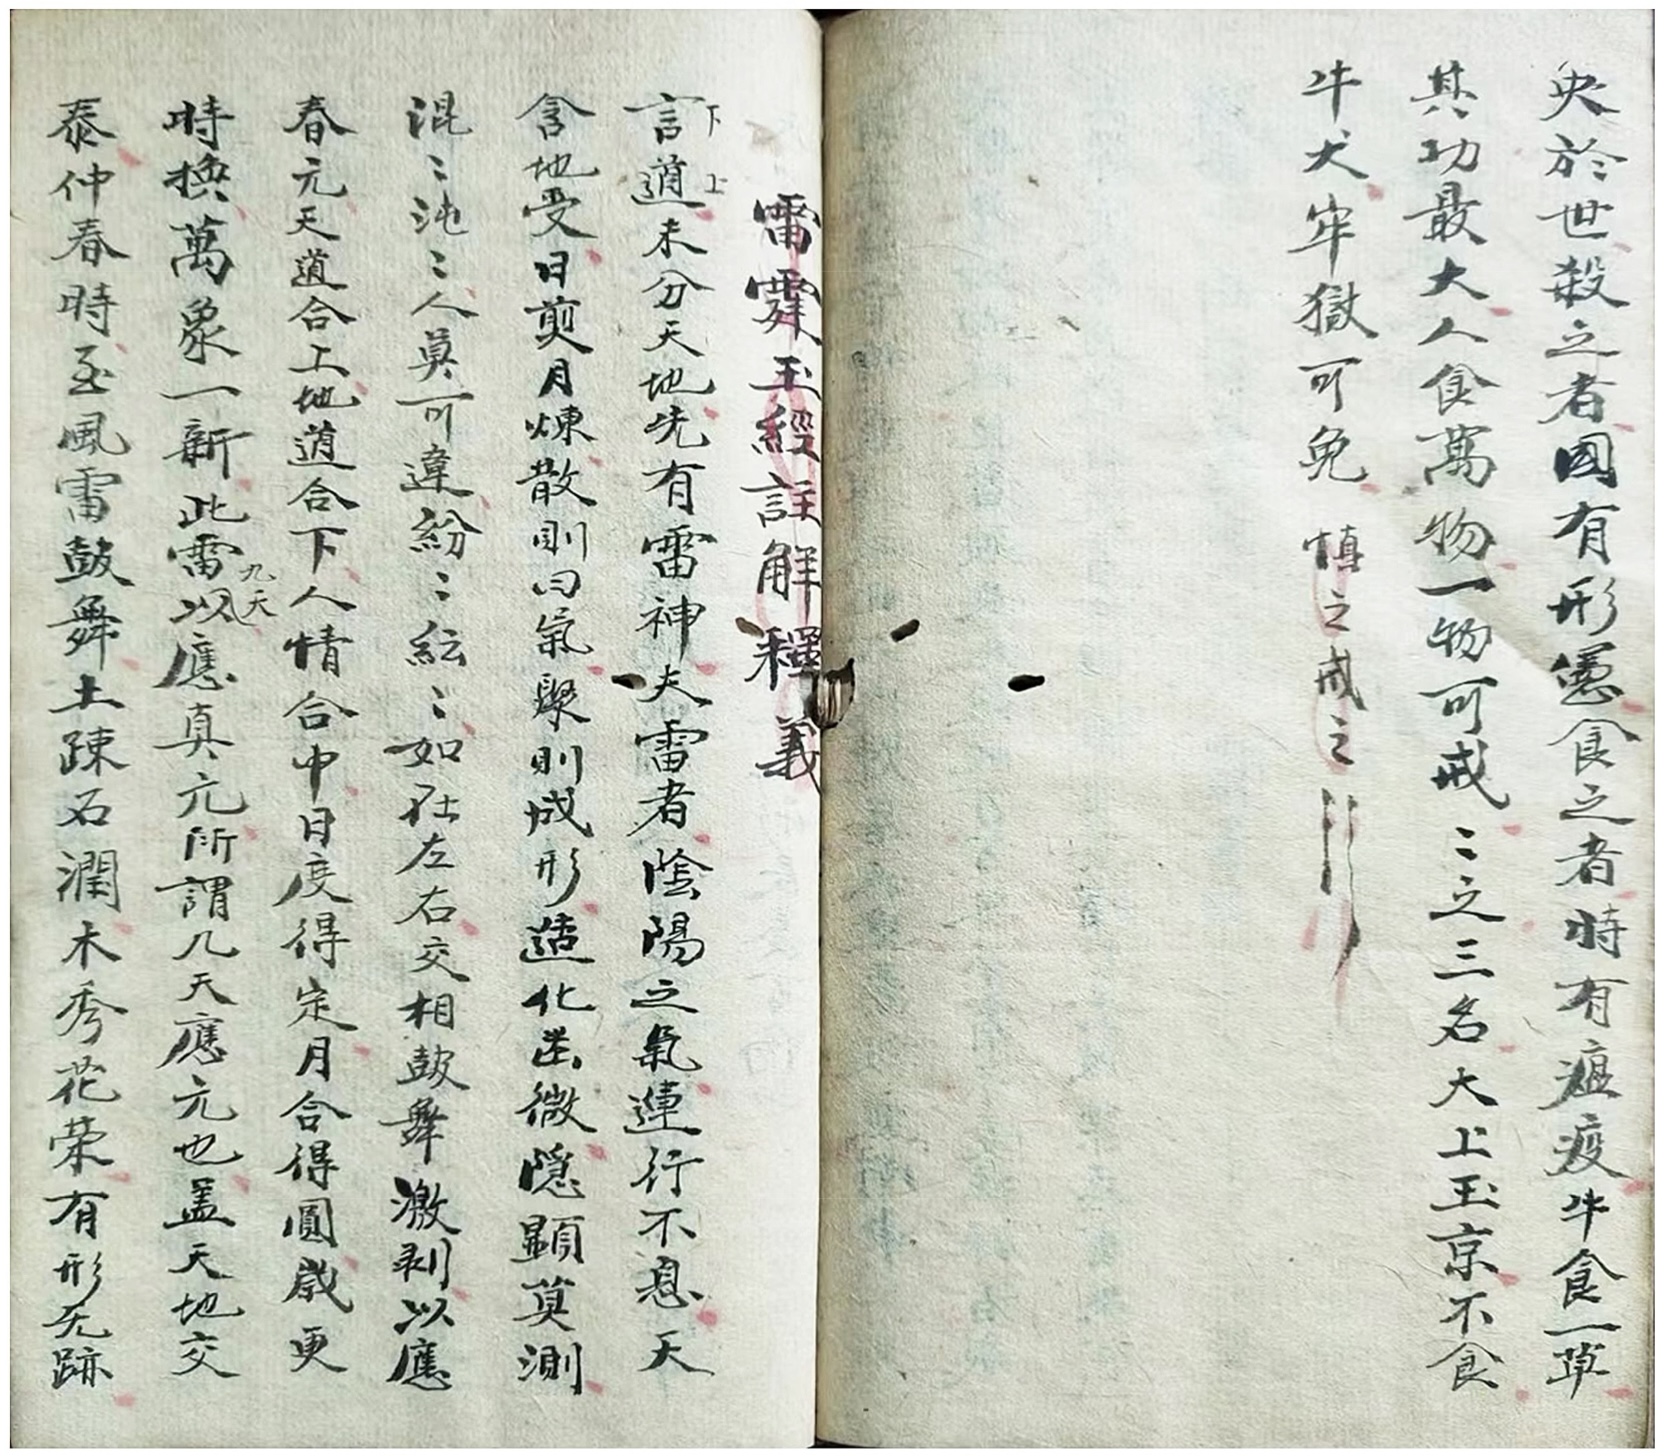 央於世殺之者國有形憲食之者時有瘟疫牛食一草
其功最大人食萬物一物可戒〻之三名大上玉京不食
牛犬牢獄可免 慎之戒之
雷霆玉經註解釋義
言道未分天地先有雷神夫雷者陰陽之氣運行不息天
下上
含地受日煎月煉散則曰氣聚則成形造化出微隱顯莫測
混〻沌〻人莫可違紛〻紜〻如社左右交相鼓舞激剥以應
春元天道合上地道合下人情合中日度得定月合得圓歲更
時換萬象一新此雷以應真元所謂九天應元也盖天地交
九天
泰仲春時至風雷鼓舞土踈石潤木秀花荣有形无跡